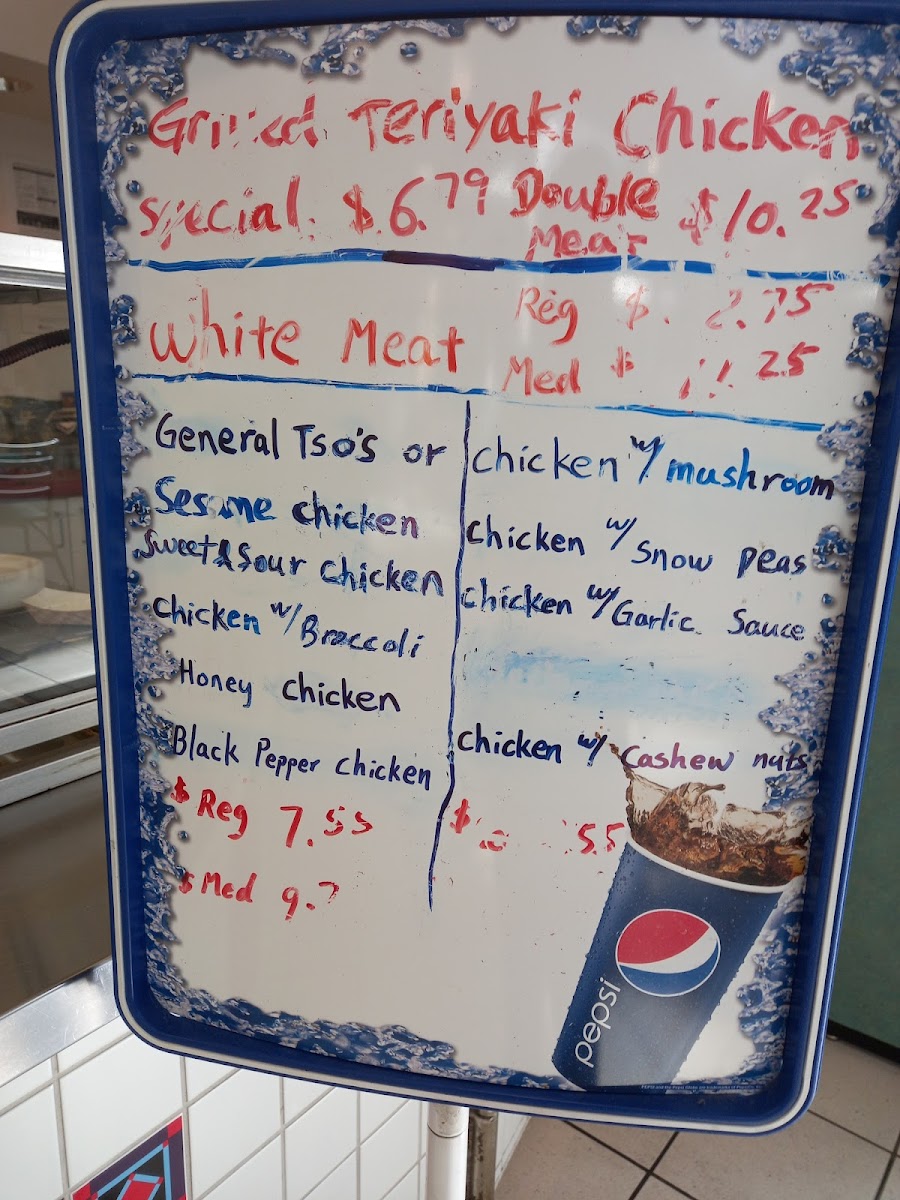 Grilled Teriyaki Chicken
Special. $6.79 Double Meat $10.25
White Meat
Reg $. 2.75
Med $ 11.25
General Tso's or
Sesame chicken
Sweet & Sour Chicken
chicken w/ Broccoli
Honey chicken
Black Pepper chicken
$ Reg 7.55
$ Med 9.
chicken w/ mushroom
Chicken w/ Snow peas
chicken w/ Garlic Sauce
Chicken w/ Cashew nuts
$ 55
pepsi